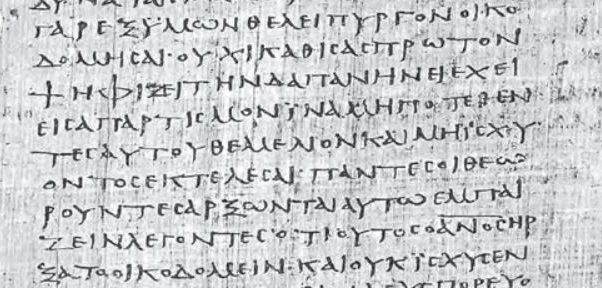 ΓΑΡΕΞΥΜΩΝΘΕΛΕΙΠΥΡΓΟΝΟΙΚΟ
ΔΟΜΗϹΑΙ·ΟΥΧΙΚΑΘΙϹΑϹΠΡΩΤΟΝ
ΨΗΦΙΖΕΙΤΗΝΔΑΠΑΝΗΝΕΙΕΧΕΙ
ΕΙϹΑΠΑΡΤΙϹΜΟΝΪΝΑΜΗΠΟΤΕΘΕΝ
ΤΕϹΑΥΤΟΥΘΕΜΕΛΙΟΝΚΑΙΜΗΪϹΧΥ
ΟΝΤΟϹΕΚΤΕΛΕϹΑΙ·ΠΑΝΤΕϹΟΙΘΕΩ
ΡΟΥΝΤΕϹΑΡΞΩΝΤΑΙΑΥΤΩΕΜΠΑΙ
ΖΕΙΝΛΕΓΟΝΤΕϹΟΤΙΟΥΤΟϹΟΑ̅Ν̅Ο̅Ϲ̅ΗΡ
ΞΑΤΟΟΙΚΟΔΟΜΕΙΝ·ΚΑΙΟΥΚΪϹΧΥϹΕΝ
ΠΟΡΕΥΟ